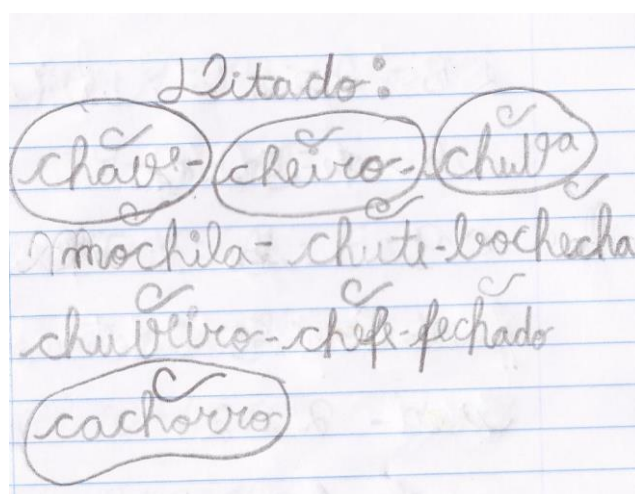 Ditado:
chave- cheiro- chuva
mochila- chute- bochecha
chuveiro- chefe- fechado
cachorro